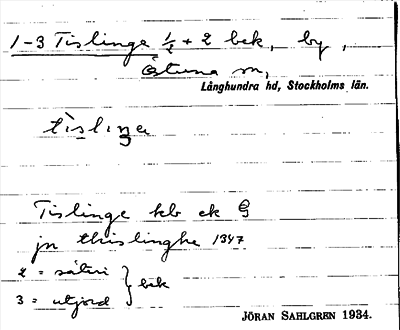 1-3 Tislinge ½ + 2 bek, by,
Östuna sn,
Långhundra hd, Stockholms län.
tìsliŋe
Tislinge kb ek G
jn thislinghe 1347
2 = säteri } bek
3 = utjord
JÖRAN SAHLGREN 1934.